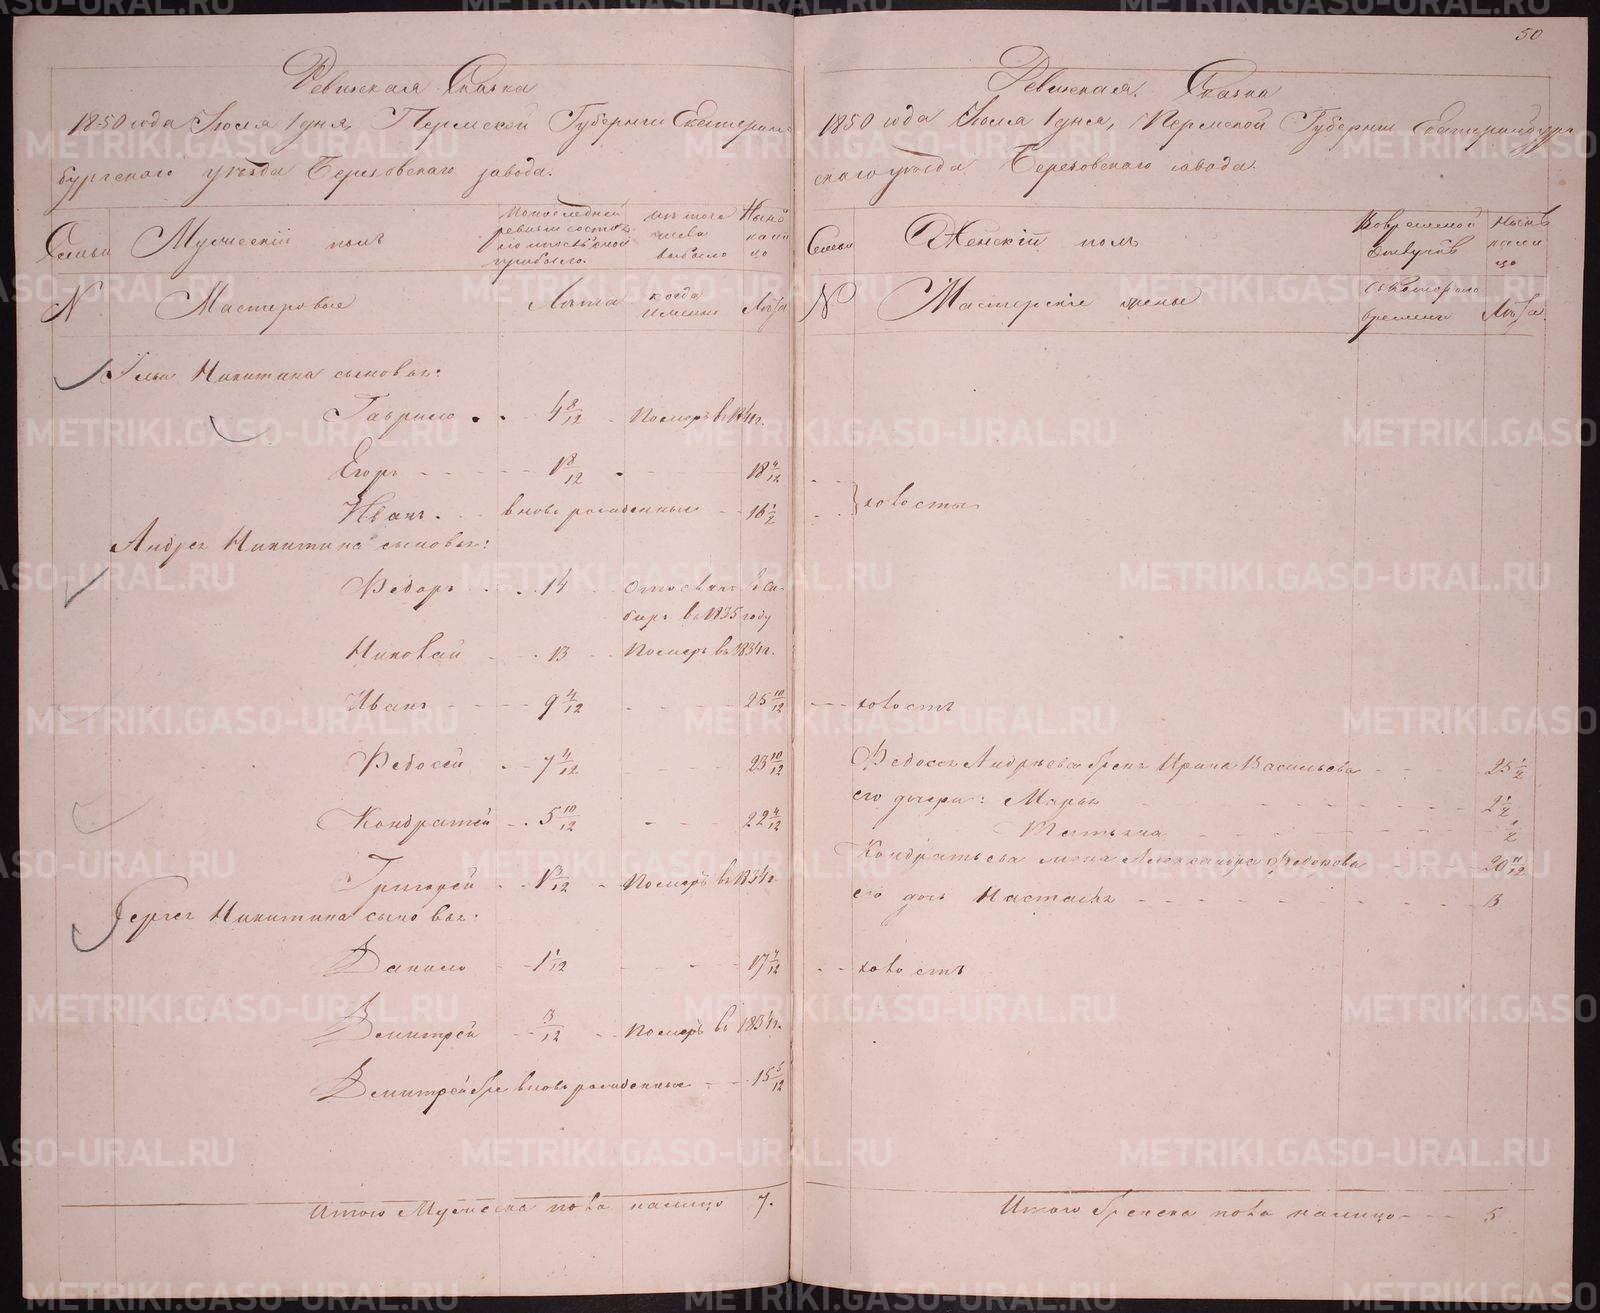 50
Ревижская Сказка
1850 года Июля 1 дня, Пермской Губернии Екатерин-
бургского уезда Березовскаго завода.
Семьи
Мужеский полъ
По последней ревизии состояло и после оной прибыло.
Изъ того числа выбыло
Ныне на лицо
№
Мастеровые
Лета
когда именно
Лета
Илья Никитина сыновья:
Гаврило 4 8/12 Померъ в 1841 г.
Егоръ 1 8/12 18 4/12
Иванъ вновь рожденные 16 1/2
Андрея Никитина сыновья:
Федоръ 14 Отосланъ в Си-
бирь въ 1835 году
Николай 13 Померъ въ 1834 г.
Иванъ 9 4/12 25 10/12
Федосей 7 4/12 23 10/12
Кондратей 5 10/12 22 4/12
Григорей 1 1/12 Померъ въ 1834 г.
Сергея Никитина сыновья:
Данило 1 1/12 17 7/12
Демитрей 3/12 Померъ в 1834 г.
Демитрей 2й вновь рожденные 15 5/12
Итого Мужеска пола налицо 7.
Ревижская Сказка
1850 года Июля 1 дня, Пермской Губернии Екатеринбург-
скаго уезда Березовскаго завода.
Семьи
Женскій полъ
Во временной отлучке
Ныне на лицо
№
Мастерскіе жены
Съ котораго времени
Лета.
холосты
холостъ
Федосея Андреева жена Ирина Васильева 25 1/2
его дочери: Марья 2 1/2
Татьяна 1/2
Кондратьева жена Александра Федокова 20 11/12
его дочь Настасья 13
холостъ
Итого Женска пола налицо 5
METRIKI.GASO-URAL.RU